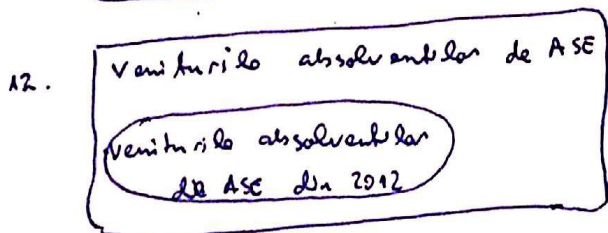 12.
veniturile absolventilor de ASE
veniturile absolventilor
de ASE din 2012